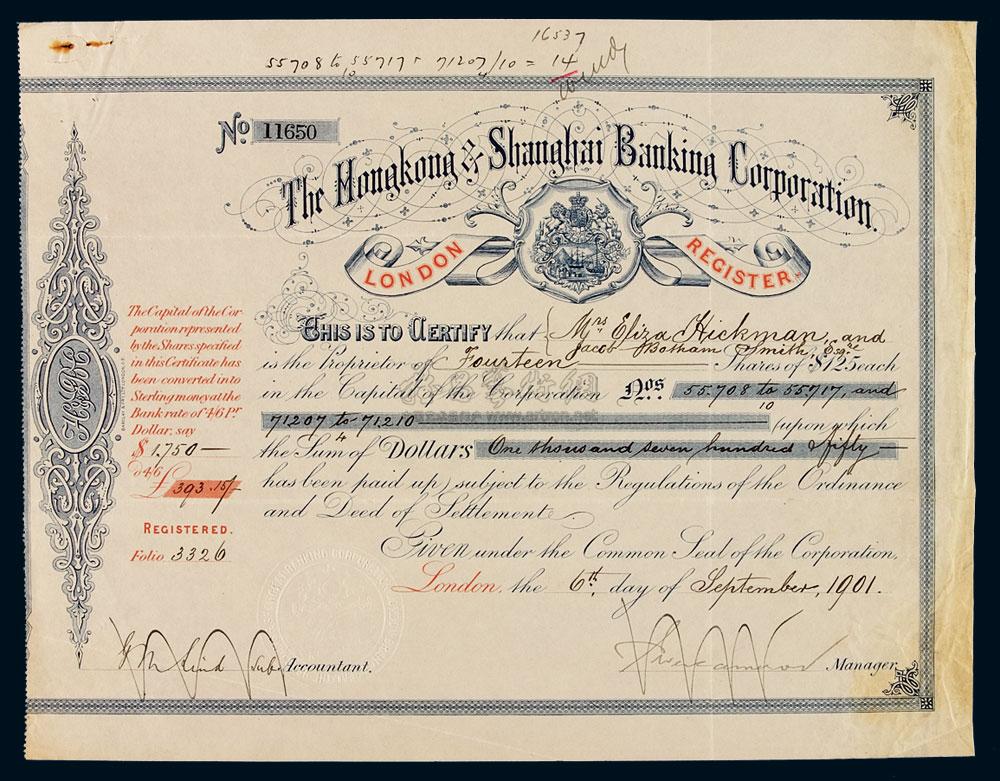 16537
55708 to 55717 & 71207/10 = 14
No. 11650
The Hongkong & Shanghai Banking Corporation.
LONDON REGISTER.
THIS IS TO CERTIFY that Mrs Eliza Hickman, and
Jacob Botham Smith, Esqr.
is the Proprietor of Fourteen Shares of $125 each
in the Capital of the Corporation Nos 55.708 to 55.717, and
10
71207 to 71.210 (upon which
4
the Sum of Dollars One thousand seven hundred & fifty
has been paid up) subject to the Regulations of the Ordinance
and Deed of Settlement.
Given under the Common Seal of the Corporation,
London, the 6th. day of September, 1901.
Accountant.
Manager.
The Capital of the Cor-
poration represented
by the Shares specified
in this Certificate has
been converted into
Sterling money at the
Bank rate of 4/6 Pr.
Dollar, say
$ 1.750 —
@ 4/6
£ 393.15/-
REGISTERED.
Folio 3326
H&SBC